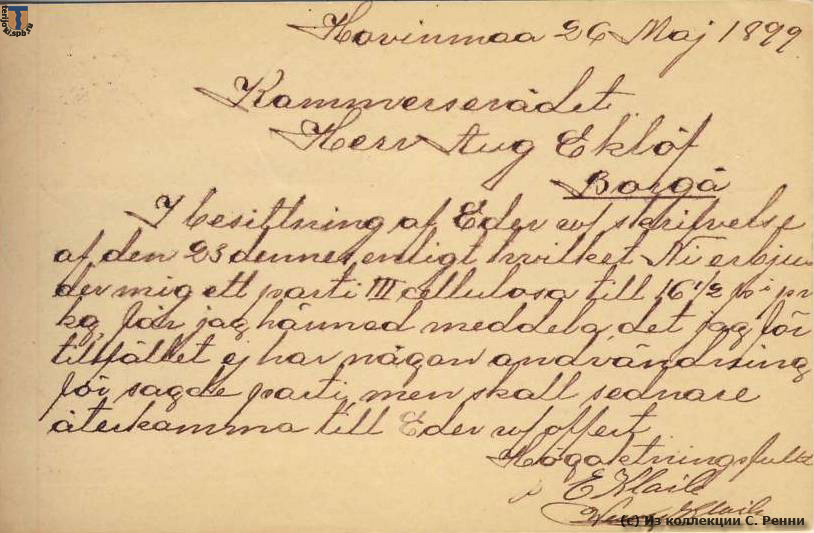 Havinmaa 26 Maj 1899.
Kammerserådet
Herr Aug Eklöf
Borgå
I besittning af Eder a/ skrifvelse
af den 23 dennes, enligt hvilket Ni erbju-
der mig ett parti III cellulosa till 16 1/2 p:i pr
kg, får jag härmed meddela, det jag för
tillfället ej har någon andvändning
för sagde parti, men skall sednare
återkamma till Eder a/ offert
Högaktningsfullt
E Klaile
(c) Из коллекции С. Ренни
terijoki.spb.ru